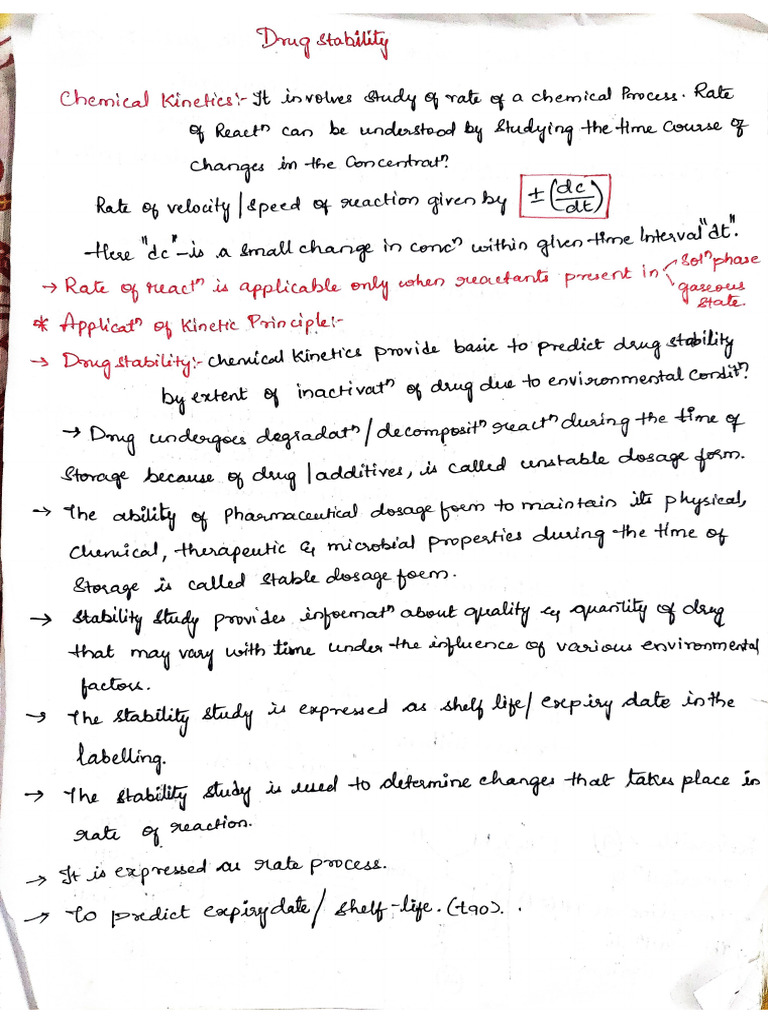 Drug stability
Chemical Kinetics:- It involves study of rate of a chemical Process. Rate
of Reactⁿ can be understood by studying the time course of
changes in the Concentratⁿ.
Rate of velocity/speed of reaction given by ±(dc/dt)
Here "dc" is a small change in concⁿ within given time Interval "dt".
→ Rate of reactⁿ is applicable only when reactants present in solⁿ phase
gaseous
state.
* Applicatⁿ of Kinetic Principle:-
→ Drug stability:- chemical kinetics provide basic to predict drug stability
by extent of inactivatⁿ of drug due to environmental conditⁿ.
→ Drug undergoes degradatⁿ/decompositⁿ reactⁿ during the time of
storage because of drug/additives, is called unstable dosage form.
→ The ability of pharmaceutical dosage form to maintain its physical,
chemical, therapeutic & microbial properties during the time of
storage is called stable dosage form.
→ Stability study provides informatⁿ about quality & quantity of drug
that may vary with time under the influence of various environmental
factors.
→ The stability study is expressed as shelf life/expiry date in the
labelling.
→ The stability study is used to determine changes that takes place in
rate of reaction.
→ It is expressed as rate process.
→ To predict expiry date/ shelf-life. (t90).